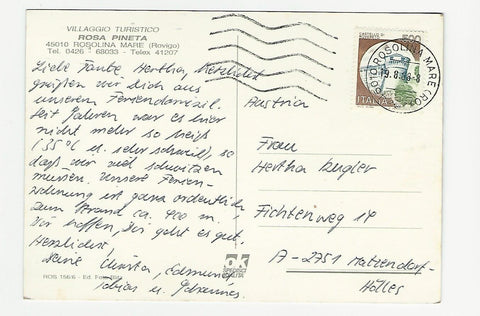 VILLAGGIO TURISTICO
ROSA PINETA
45010 ROSOLINA MARE (Rovigo)
Tel. 0426 - 68033 - Telex 41207
Liebe Tante Hertha, Herzlichst
grüßen wir dich aus
unserem Feriendomizil.
Seit Jahren war es hier
nicht mehr so heiß
(35°C u. sehr schwül), so
daß wir viel schwitzen
müssen. Unsere Ferien-
wohnung ist ganz ordentlich
zum Strand ca. 400 m.
Wir hoffen, Dir geht es gut.
Herzlichst,
Deine Christa, Edmund,
Tobias u. Johannes.
ROS 156/6 - Ed. Foto
OK
500
ITALIA
ROSOLINA MARE (RO)
19.8.88-8
Austria
Frau
Hertha
Fichtenweg 14
A-2751 Matzendorf-
Hölles